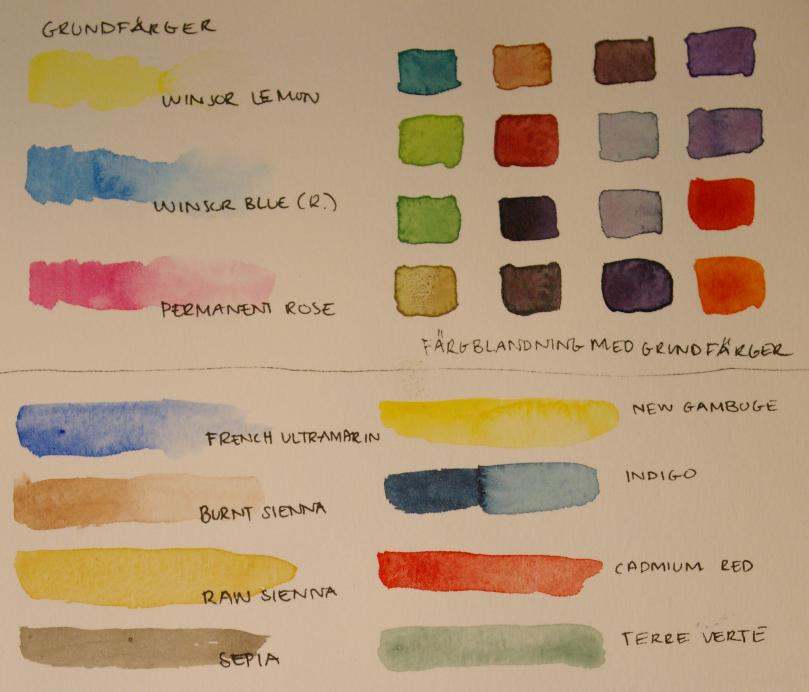 GRUNDFÄRGER
WINSOR LEMON
WINSOR BLUE (R.)
PERMANENT ROSE
FÄRGBLANDNING MED GRUNDFÄRGER
FRENCH ULTRAMARIN
BURNT SIENNA
RAW SIENNA
SEPIA
NEW GAMBOGE
INDIGO
CADMIUM RED
TERRE VERTE